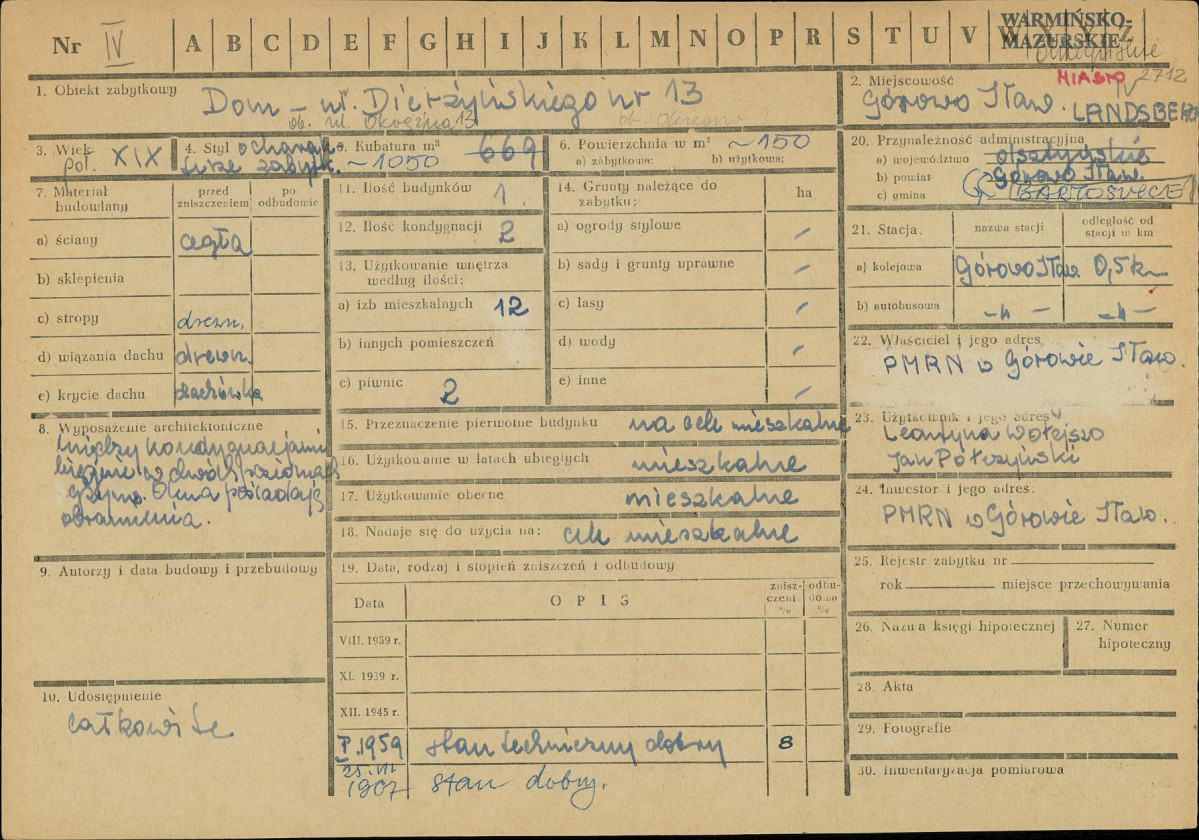 Nr IV A B C D E F G H I J K L M N O P R S T U V W Y Z Ż
WARMIŃSKO-
MAZURSKIE
1. Obiekt zabytkowy Dom – ul. Dierżyńskiego nr 13
ob. ul. Okrężna 13
2. Miejscowość
MIASTO IV 2712
Górowo Iław. LANDSBERG
3. Wiek poł. XIX
4. Styl o charakterze zabytk.
5. Kubatura m³ 669
~1050
6. Powierzchnia w m² ~150
a) zabytkowa: b) użytkowa:
20. Przynależność administracyjna
a) województwo olsztyńskie
b) powiat Górowo Iław.
c) gmina BARTOSZYCE
7. Materiał budowlany
przed zniszczeniem
po odbudowie
a) ściany cegła
b) sklepienia
c) stropy drewn.
d) wiązania dachu drewn.
e) krycie dachu dachówka
11. Ilość budynków 1.
12. Ilość kondygnacji 2
13. Użytkowanie wnętrza według ilości:
a) izb mieszkalnych 12
b) innych pomieszczeń
c) piwnic 2
14. Grunty należące do zabytku: ha
a) ogrody stylowe –
b) sady i grunty uprawne –
c) lasy –
d) wody –
e) inne –
21. Stacja. nazwa stacji odległość od stacji w km
a) kolejowa Górowo Iław. 0,5 km
b) autobusowa –„– –„–
22. Właściciel i jego adres
PMRN w Górowie Iław.
8. Wyposażenie architektoniczne
Między kondygnacjami
gzyms. Okna posiadają
obramienia.
15. Przeznaczenie pierwotne budynku na cele mieszkalne
16. Użytkowanie w latach ubiegłych mieszkalne
17. Użytkowanie obecne mieszkalne
18. Nadaje się do użycia na: cele mieszkalne
23. Użytkownik i jego adres
Leontyna Wołejszo
Jan Półczyński
24. Inwestor i jego adres:
PMRN w Górowie Iław.
9. Autorzy i data budowy i przebudowy
19. Data, rodzaj i stopień zniszczeń i odbudowy
Data OPIS zniszczenia % odbudowa %
VIII. 1939 r.
XI. 1939 r.
XII. 1945 r.
I. 1959 stan techniczny dobry 8
stan dobry.
25. Rejestr zabytku nr
rok miejsce przechowywania
26. Nazwa księgi hipotecznej
27. Numer hipoteczny
10. Udostępnienie
całkowite
28. Akta
29. Fotografie
30. Inwentaryzacja pomiarowa